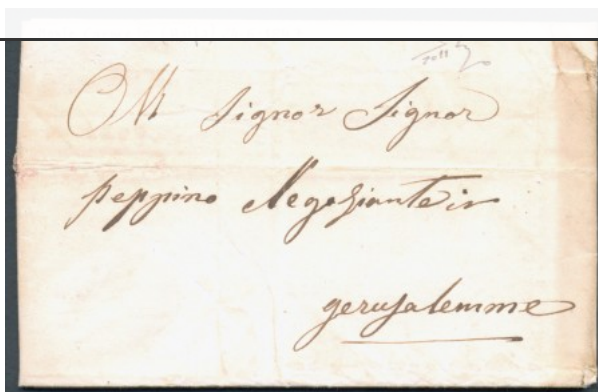 Al Signor Signor
peppino Negoziante in
gerusalemme